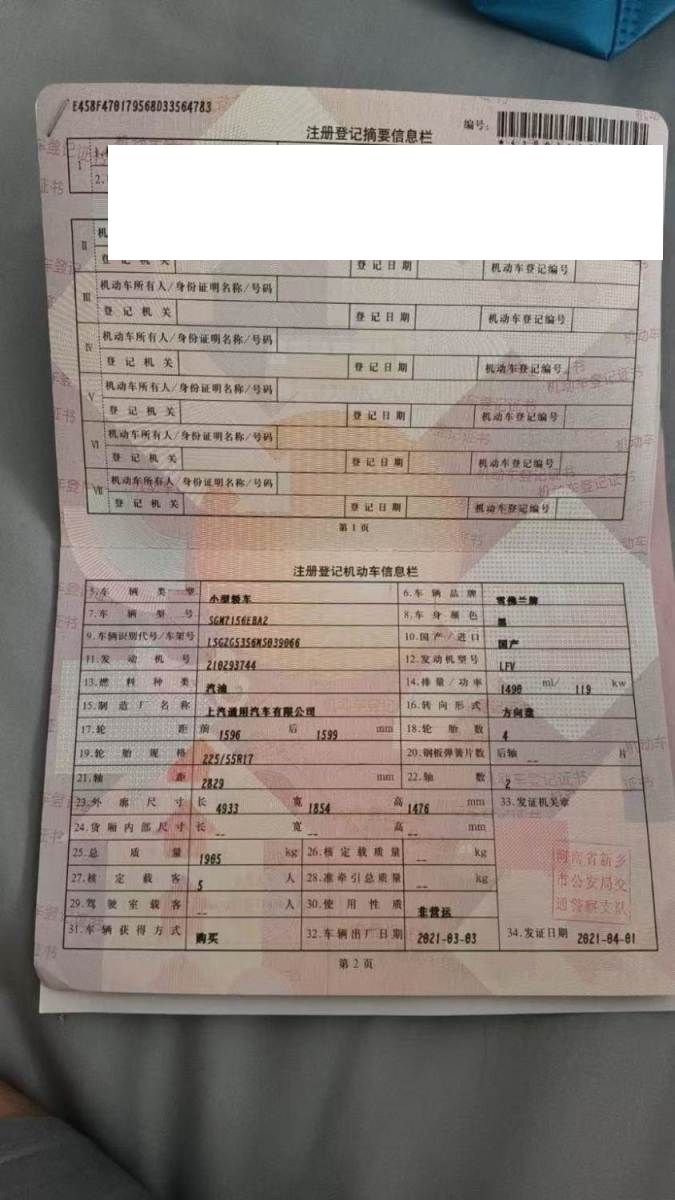 E458F470179568D33564783
注册登记摘要信息栏
编号:
I
2.
II 机
登记机关 登记日期 机动车登记编号
III 机动车所有人/身份证明名称/号码
登记机关 登记日期 机动车登记编号
IV 机动车所有人/身份证明名称/号码
登记机关 登记日期 机动车登记编号
V 机动车所有人/身份证明名称/号码
登记机关 登记日期 机动车登记编号
VI 机动车所有人/身份证明名称/号码
登记机关 登记日期 机动车登记编号
VII 机动车所有人/身份证明名称/号码
登记机关 登记日期 机动车登记编号
第1页
注册登记机动车信息栏
5.车辆类型 小型轿车 6.车辆品牌 雪佛兰牌
7.车辆型号 SGM7156EBA2 8.车身颜色 黑
9.车辆识别代号/车架号 LSGZG5356MS039066 10.国产/进口 国产
11.发动机号 210293744 12.发动机型号 LFV
13.燃料种类 汽油 14.排量/功率 1490 ml/ 119 kw
15.制造厂名称 上汽通用汽车有限公司 16.转向形式 方向盘
17.轮距 前 1596 后 1599 mm 18.轮胎数 4
19.轮胎规格 225/55R17 20.钢板弹簧片数 后轴 -- 片
21.轴距 2829 mm 22.轴数 2
23.外廓尺寸 长 4933 宽 1854 高 1476 mm 33.发证机关章
24.货厢内部尺寸 长 -- 宽 -- 高 -- mm
25.总质量 1905 kg 26.核定载质量 -- kg
27.核定载客 5 人 28.准牵引总质量 -- kg
河南省新乡
市公安局交
通警察支队
29.驾驶室载客 -- 人 30.使用性质 非营运
31.车辆获得方式 购买 32.车辆出厂日期 2021-03-03 34.发证日期 2021-04-01
第2页